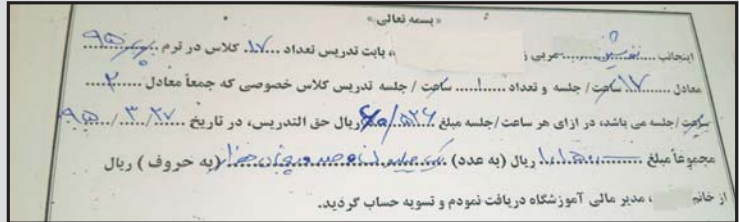 « بسمه تعالی »
اینجانب ..... نوشین ..... مربی ز ، بابت تدریس تعداد ...۱۷... کلاس در ترم ....... ۹۵
معادل ...۱۷... ساعت / جلسه و تعداد ....۱.... ساعت / جلسه تدریس کلاس خصوصی که جمعاً معادل ....۲....
ساعت / جلسه می باشد، در ازای هر ساعت / جلسه مبلغ ریال حق التدریس، در تاریخ ۹۵/۳/۲۷
مجموعاً مبلغ ریال (به عدد) یک میلیون (به حروف ) ریال
از خانم ، مدیر مالی آموزشگاه دریافت نمودم و تسویه حساب گردید.